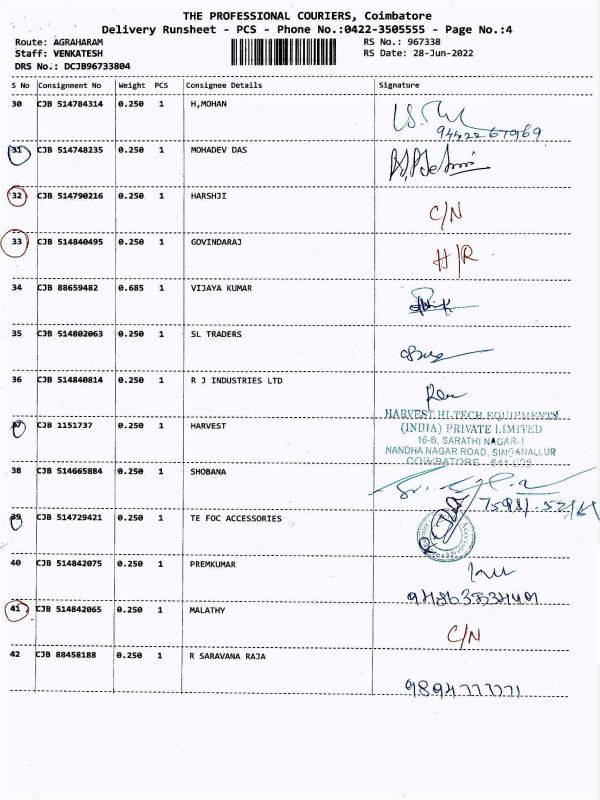 THE PROFESSIONAL COURIERS, Coimbatore
Delivery Runsheet - PCS - Phone No.:0422-3505555 - Page No.:4
Route: AGRAHARAM RS No.: 967338
Staff: VENKATESH RS Date: 28-Jun-2022
DRS No.: DCJB96733804
S No Consignment No Weight PCS Consignee Details Signature
30 CJB 514784314 0.250 1 H,MOHAN
9442267969
31 CJB 514748235 0.250 1 MOHADEV DAS
32 CJB 514790216 0.250 1 HARSHJI
C/N
33 CJB 514840495 0.250 1 GOVINDARAJ
H/R
34 CJB 88659482 0.685 1 VIJAYA KUMAR
35 CJB 514802063 0.250 1 SL TRADERS
36 CJB 514840814 0.250 1 R J INDUSTRIES LTD
HARVEST HI-TECH EQUIPMENTS
37 CJB 1151737 0.250 1 HARVEST (INDIA) PRIVATE LIMITED
16-B, SARATHI NAGAR-I
NANDHA NAGAR ROAD, SINGANALLUR
COIMBATORE - 641 005
38 CJB 514665884 0.250 1 SHOBANA
39 CJB 514729421 0.250 1 TE FOC ACCESSORIES
40 CJB 514842075 0.250 1 PREMKUMAR
41 CJB 514842065 0.250 1 MALATHY
C/N
42 CJB 88458188 0.250 1 R SARAVANA RAJA
9894777771